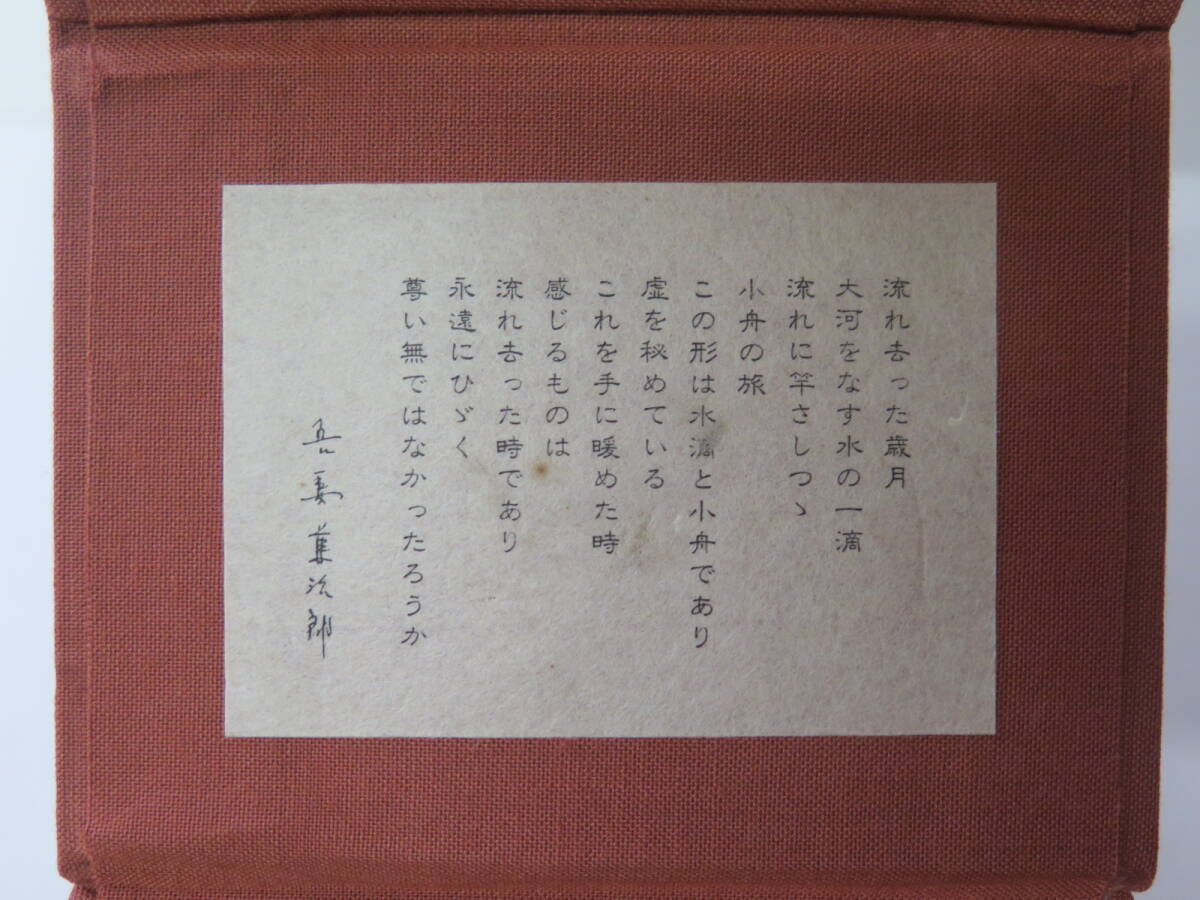 流れ去った歳月
大河をなす水の一滴
流れに竿さしつゝ
小舟の旅
この形は水滴と小舟であり
虚を秘めている
これを手に暖めた時
感じるものは
流れ去った時であり
永遠にひゞく
尊い無ではなかったろうか
吾妻兼治郎